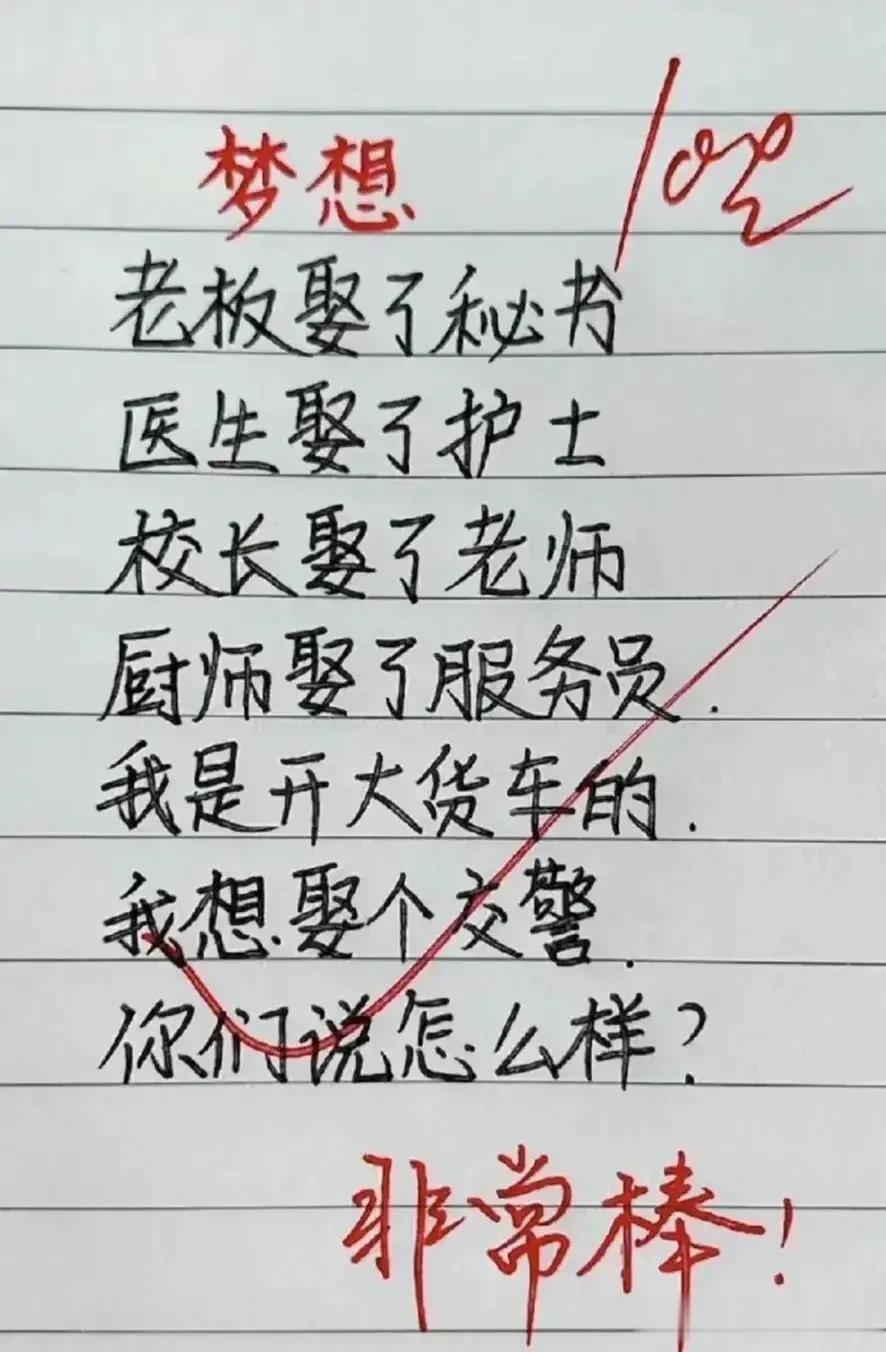 梦想
100
老板娶了秘书
医生娶了护士
校长娶了老师
厨师娶了服务员.
我是开大货车的.
我想娶个交警.
你们说怎么样?
非常棒!